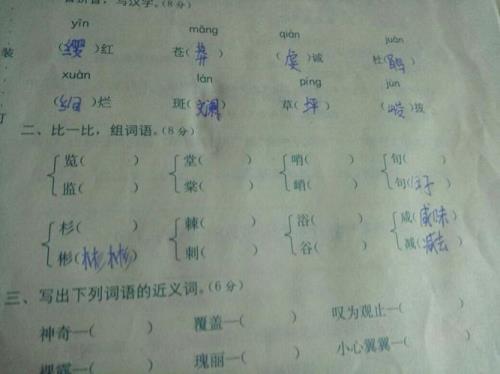 拼音,写汉字。(8分)
yīn māng qián juān
装
( )红 苍(莽) (虔)诚 杜(鹃)
xuàn lán píng jùn
(绚)烂 斑(斓) 草(坪) (峻)拔
订
二、比一比,组词语。(8分)
览( ) 堂( ) 哨( ) 旬( )
监( ) 棠( ) 峭( ) 句(句子)
杉( ) 棘( ) 浴( ) 咸(咸味)
彬(彬彬) 刺( ) 谷( ) 减(减去)
三、写出下列词语的近义词。(6分)
神奇—( ) 覆盖—( ) 叹为观止—( )
裸露—( ) 瑰丽—( ) 小心翼翼—( )